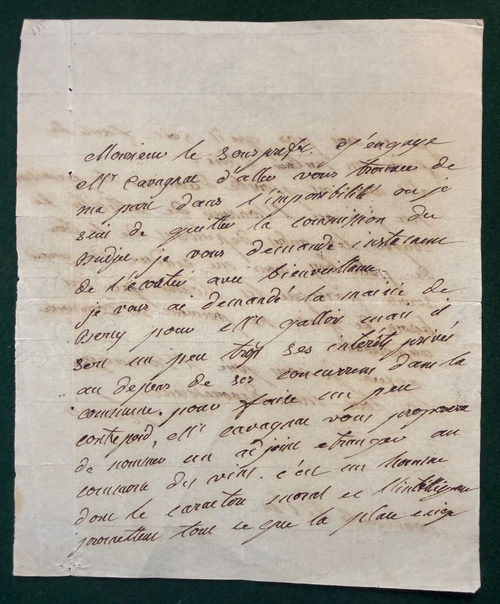 Monsieur le Sous prefr. J'engage
Mr Cavagnac d'aller vous trouver de
ma part dans l'impossibilité ou je
suis de quitter la commission du
Budjet je vous demande instament
de l'écouter avec bienveillance.
je vous ai demandé la mairie de
Bercy pour Mr gallois mais il
sert un peu trop ses intérêts privés
au depens de ses concurrens dans la
commune. pour faire un peu
contrepoid, Mr Cavagnac vous proposera
de nommer un adjoint etranger au
commerce des vins. c'est un homme
dont le caractere moral et l'intelligence
promettent tout ce que la place exige